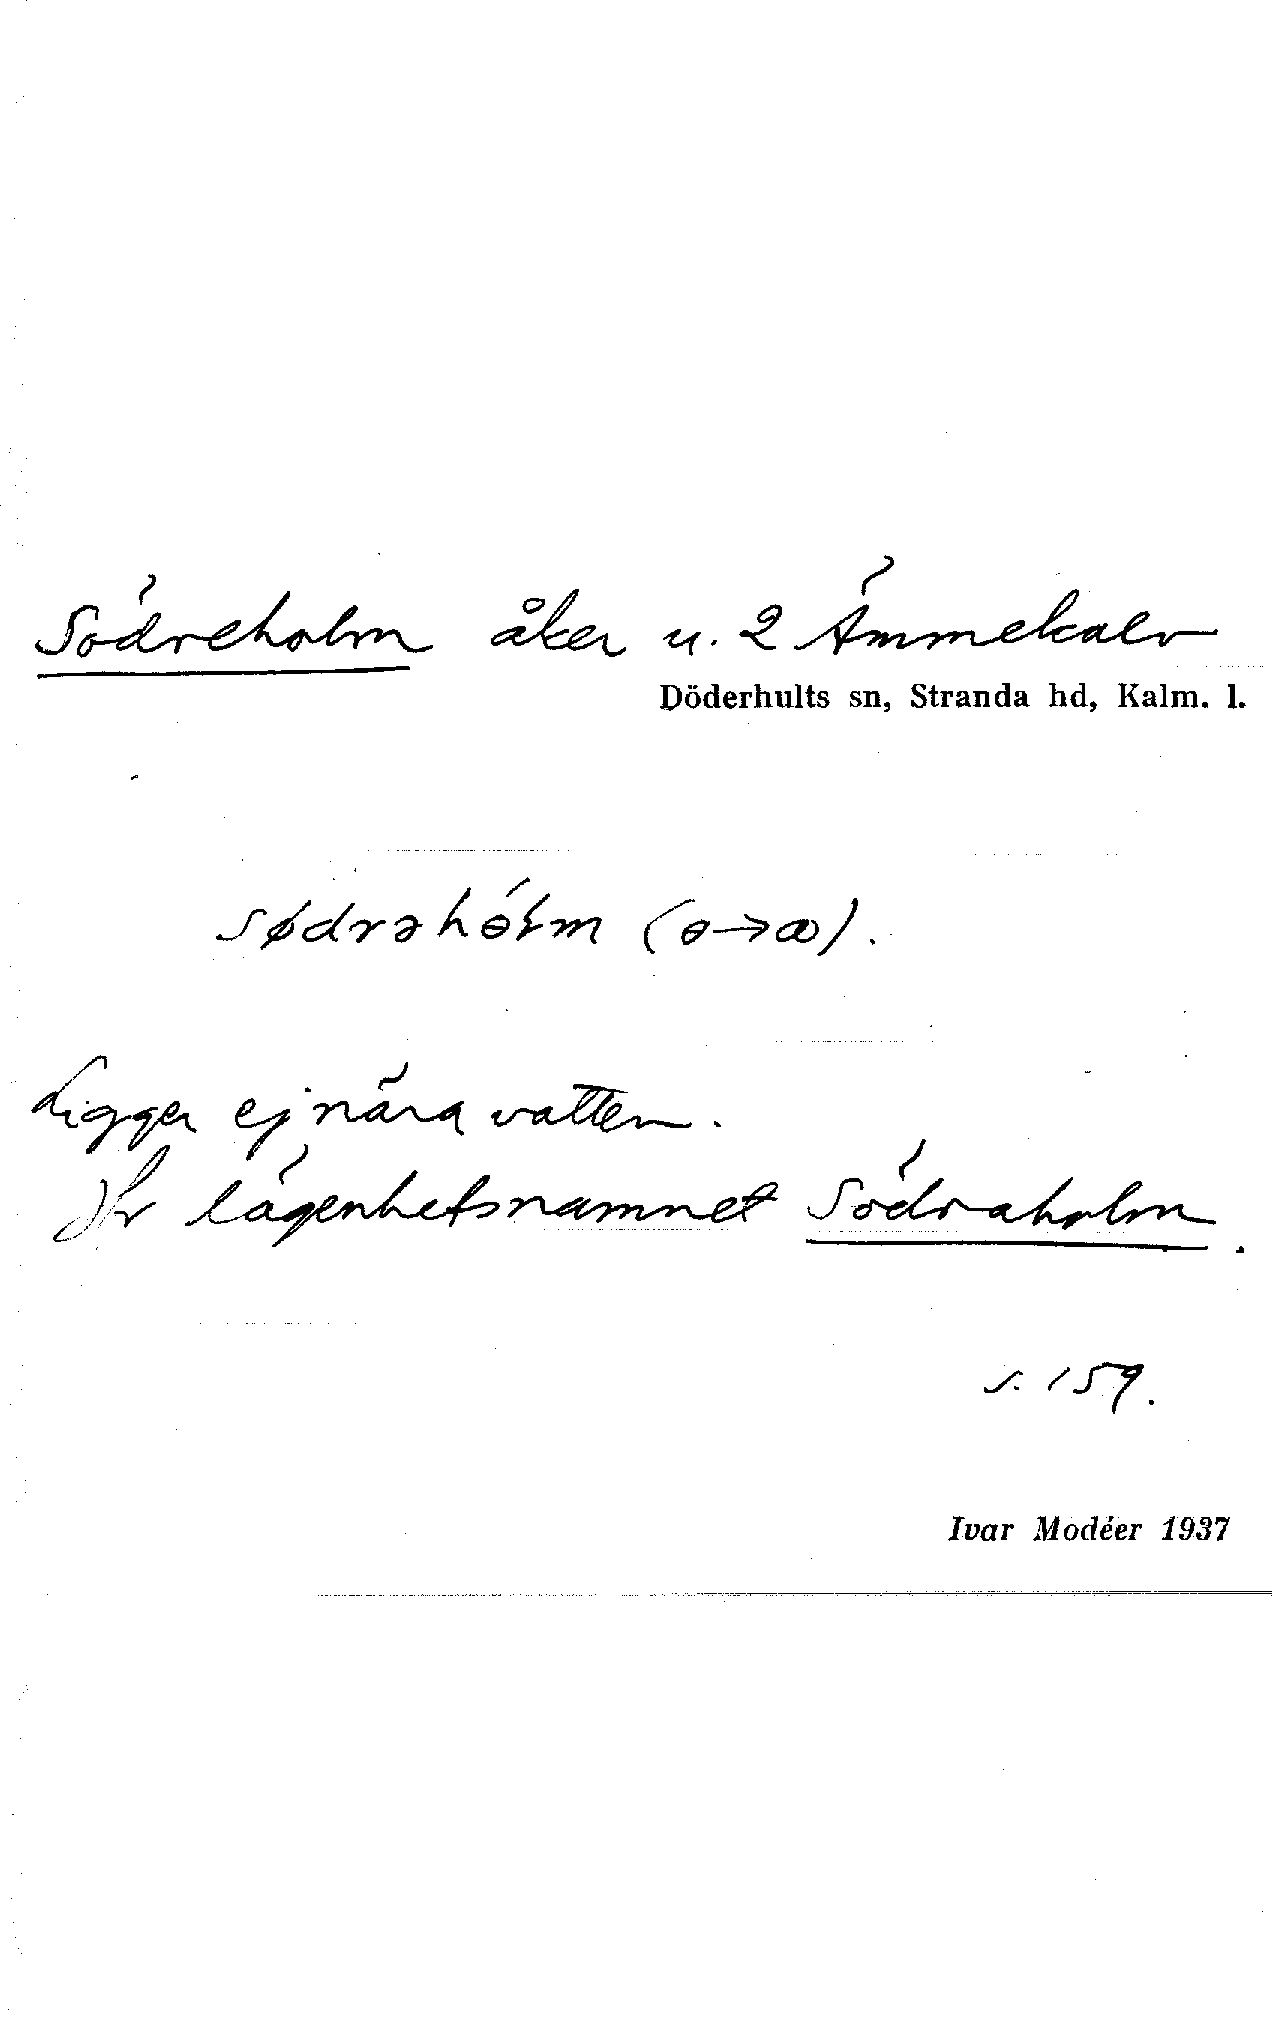 Södreholm åker u. 2 Ämmekalv
Döderhults sn, Stranda hd, Kalm. l.
sødrəhɵ́ɫm (ɵ→ꝏ).
Ligger ej nära vatten.
Jfr lägenhetsnamnet Södraholm.
s. 159.
Ivar Modéer 1937